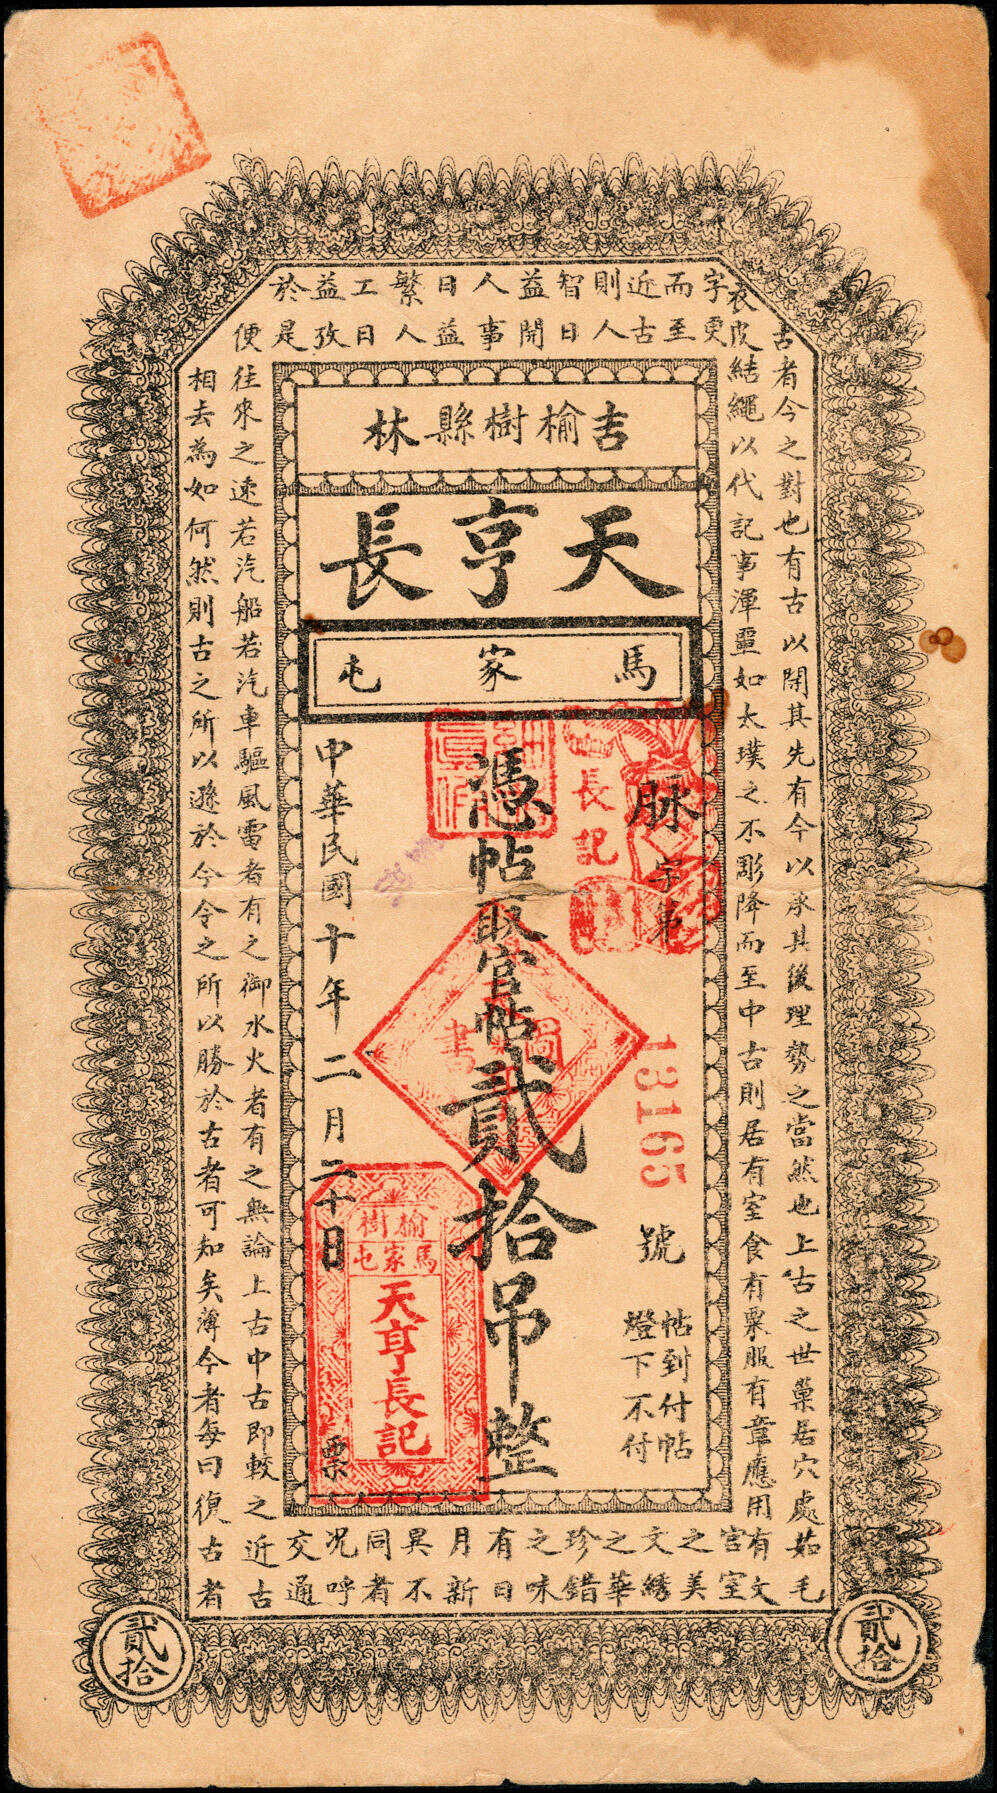 古者今之對也有古以開其先有今以承其後理勢之當然也上古之世巢居穴處茹毛
衣皮結繩以代記事渾噩如太璞之不彫降而至中古則居有室食有粟服有章應用有文
字更而至近古則人智日益開人事日益繁人工日益孜於是
宮室之美文綉之華珍錯之味有日月新異不同者况呼交通
便往來之速若汽船若汽車驅風雷者有之御水火者有之無論上古中古即較之近古
相去為如何然則古之所以遜於今今之所以勝於古者可知矣薄今者每曰復古者
吉林榆樹縣
天亨長
馬家屯
脉字第
13165
號
帖到付帖
燈下不付
憑帖取官帖貳拾吊整
中華民國十年二月二十日票
長記
榆樹
馬家屯
天亨長記
貳拾
貳拾